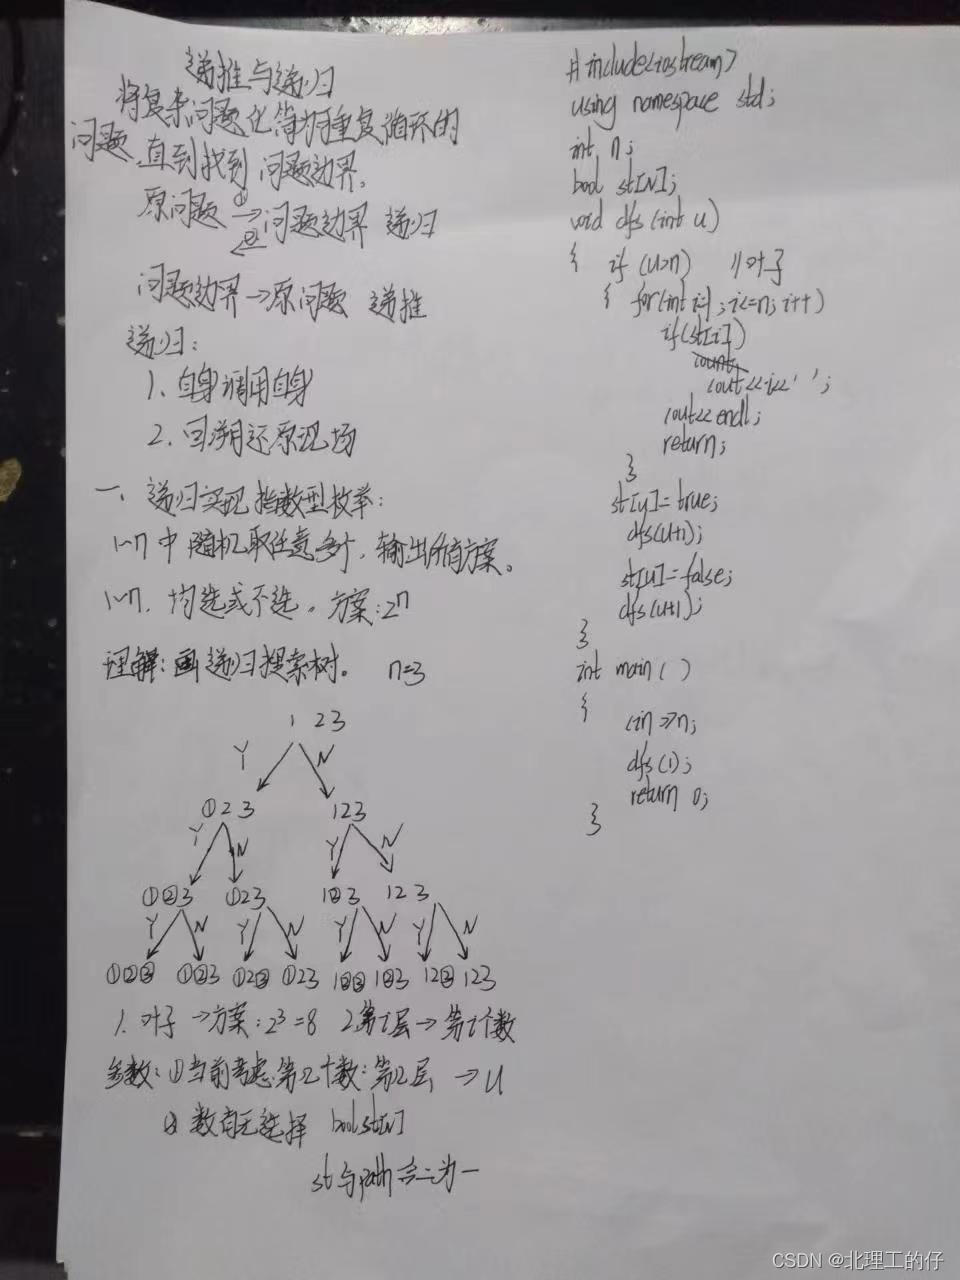 递推与递归
将复杂问题化简为重复循环的
问题,直到找到问题边界。
原问题 ①→ ②← 问题边界 递归
问题边界→原问题 递推
递归:
1. 自身调用自身
2. 回溯还原现场
一、递归实现指数型枚举:
1~n中随机取任意多个,输出所有方案。
1~n,均选或不选。方案:2ⁿ
理解:画递归搜索树。 n=3
1 2 3
Y N
①2 3 1 2 3
Y N Y N
①②3 ①2 3 1②3 1 2 3
Y N Y N Y N Y N
①②③ ①②3 ①2③ ①2 3 1②③ 1②3 1 2③ 1 2 3
1. 叶子→方案:2³=8 2. 第i层→第i个数
参数:①当前考虑第几个数:第几层→u
② 数有无选择 bool st[N]
st与path合二为一
#include<iostream>
using namespace std;
int n;
bool st[N];
void dfs(int u)
{ if (u>n) //叶子
{ for(int i=1;i<=n;i++)
if(st[i])
cout<<i<<' ';
cout<<endl;
return;
}
st[u]=true;
dfs(u+1);
st[u]=false;
dfs(u+1);
}
int main( )
{
cin>>n;
dfs(1);
return 0;
}
CSDN @北理工的仔